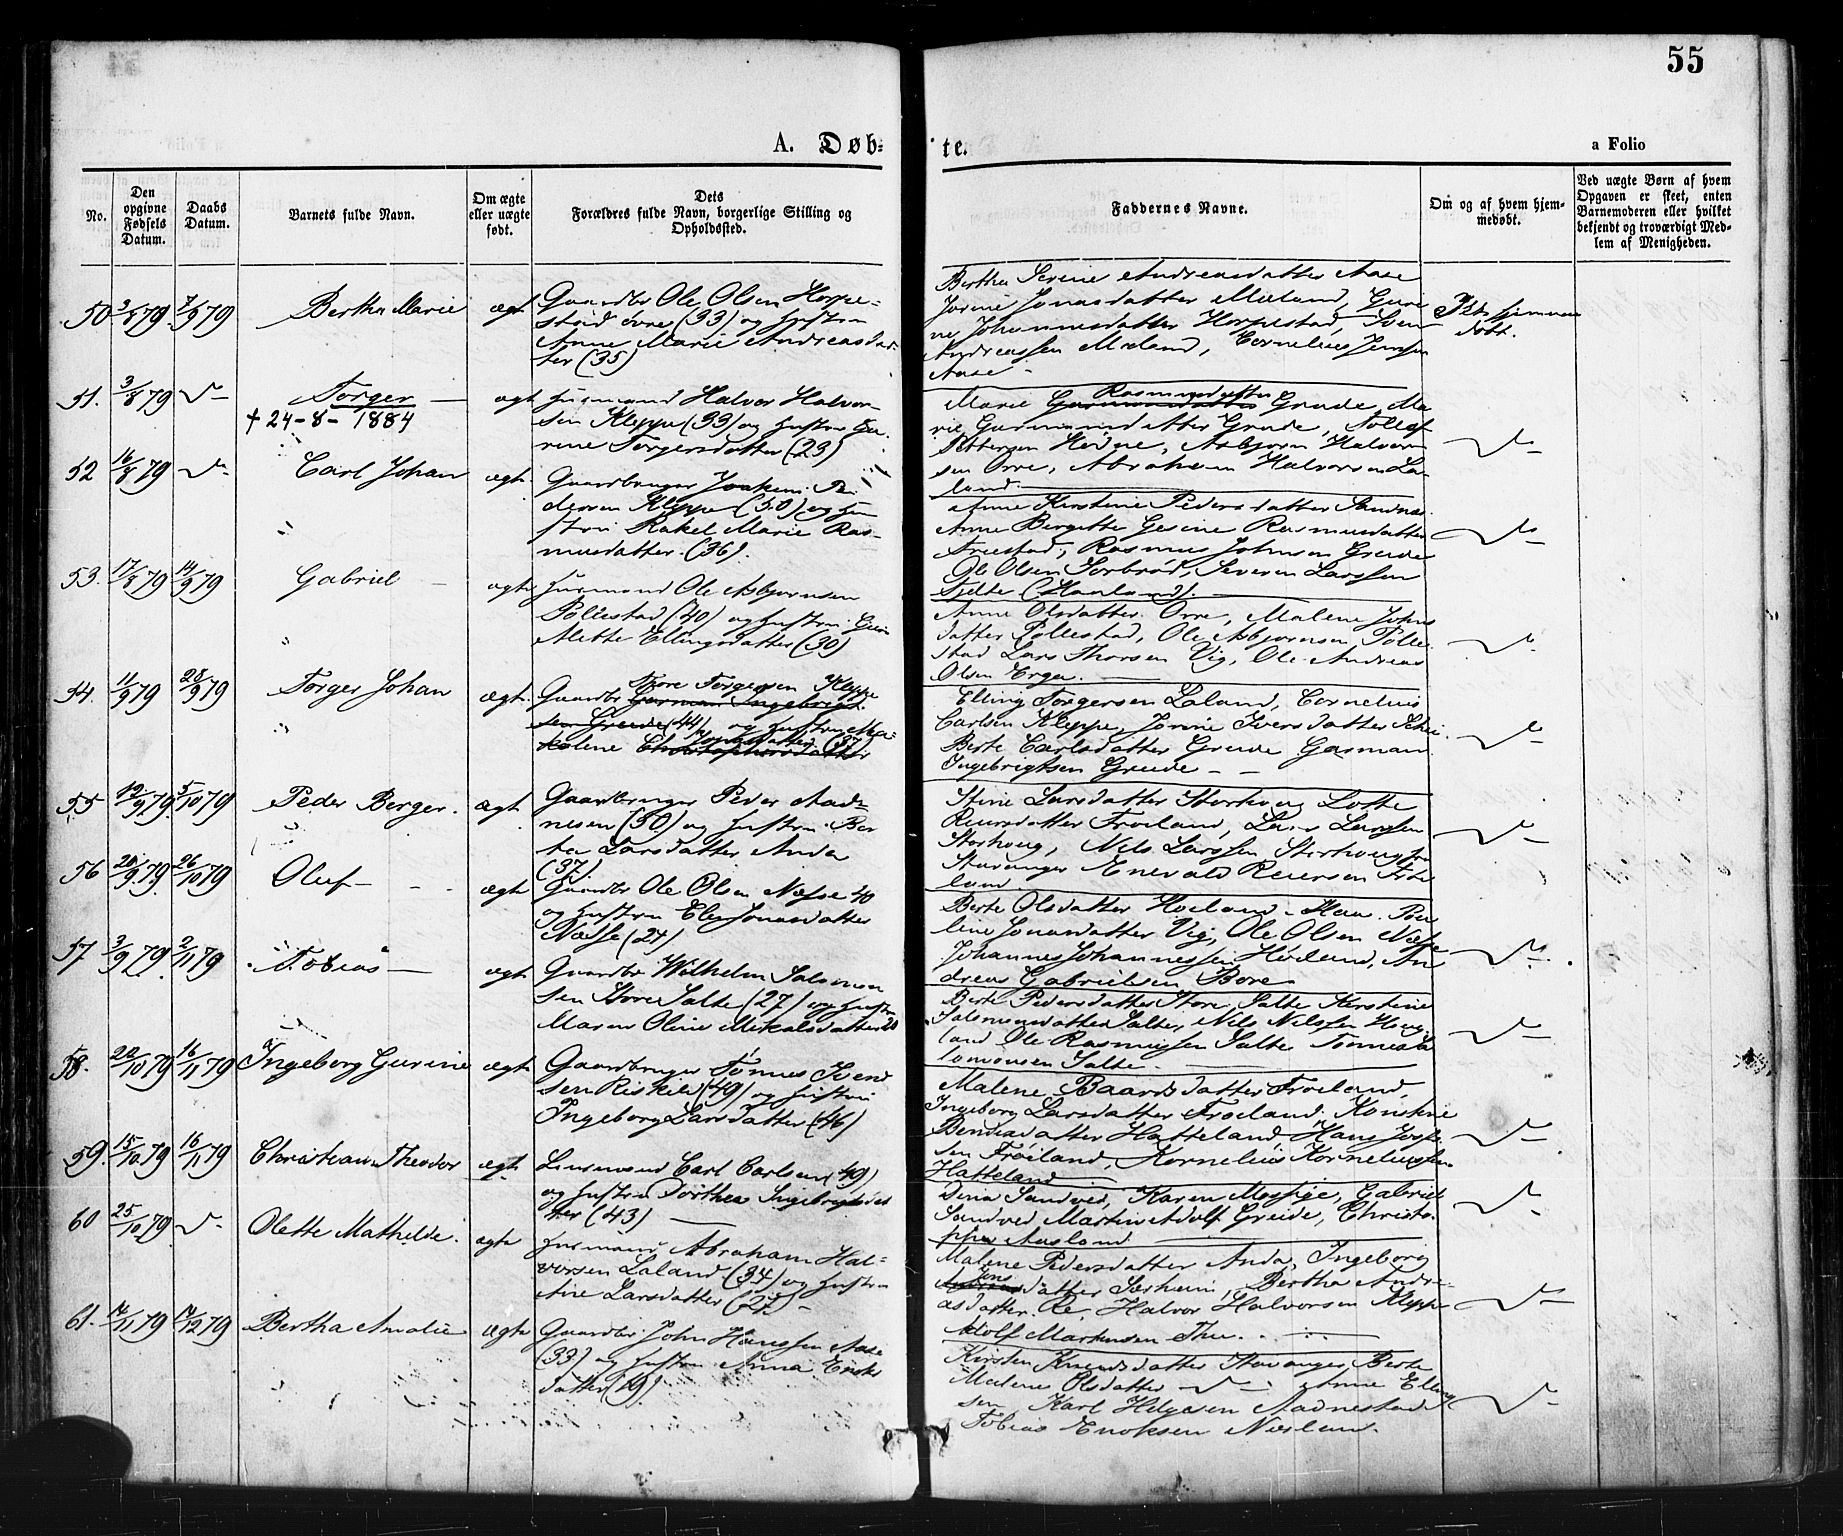 55
A. Døb-
te.
a Folio
No.
Den opgivne Fødsels Datum.
Daabs Datum.
Barnets fulde Navn.
Om ægte eller uægte født.
Dets Forældres fulde Navn, borgerlige Stilling og Opholdssted.
Faddernes Navne.
Om og af hvem hjemmedøbt.
Ved uægte Børn af hvem Opgaven er skeet, enten Barnemoderen eller hvilket bekjendt og troværdigt Medlem af Menigheden.
50 79. 7/9 79 Bertha Marie ægt Gaardbr Ole Olsen Horpe-
stad övre (33) og Hustru
Anne Marie Andreasdat-
ter (35)
Bertha Serine Andreasdatter Aase
Josine Jonasdatter Mæland, Guri
ne Johannesdatter Horpestad, Sven
Andreassen Mæland, Cornelius Jensen
Aase -
Ikke hjemme
döbt.
51. 3/8 79 Torger ægt Husmand Halvor Halvor-
† 24-8-1884
sen Kleppe (33) og Hustru Gu-
rine Torgersdatter (23)
Rasmusdatter
Marie Grude, Ma
rie Garmannsdatter Grude, Tollef
Pettersen Hodne, Asbjørn Halvor
sen Orre, Abraham Halvorsen La-
land.
52 16/8 79 Carl Johan ægt. Gaardbruger Joakim Pe
dersen Kleppe (50) og Hu
stru Rakel Marie Ras-
musdatter. (36).
Anne Kirstine Pedersdatter Sandnes
Anne Bergitte Gesine Rasmusdatter
Friestad, Rasmus Johnsen Grude
Ole Olsen Sorbröd, Severin Larssen
Tjelte (Haaland).
53. 17/8 79 14/9 79 Gabriel ægte Husmand Ole Asbjørnsen
Pollestad (40) og Hustru Guri
Mette Ellingsdatter (30)
Anne Olsdatter Orre, Malene Johns
datter Pollestad, Ole Asbjørnsen Polle
stad Lars Thorsen Vig, Ole Andreas
Olsen Erga.
54. 11/9 79 28/9 79 Torger Johan ægt. Gaardbr Tore Torgersen Kleppe
Garman Ingebrigt-
sen Grude (44) og Hustru Ma-
lene Jonasdatter (37)
Christophersdatter
Elling Torgersen Laland, Cornelius
Carlsen Kleppe, Jorine Iversdatter
Berte Carlsdatter Grude Garman
Ingebrigtsen Grude - -
55 12/9 79 5/10 79 Peder Berger. ægt. Gaardbruger Peder Aad-
nesen (50) og Hustru Ber
ta Larsdatter Anda
(37).
Stine Larsdatter Storhoug Lotte
Reiersdatter Fröiland, Lars Larssen
Storhoug, Nils Larssen Storhoug fra
Stavanger Enevald Reiersen Fröi
land.
56 20/9 79 26/10 79 Oluf - ægt. Gaardbr Ole Olsen Næsse 40
og Hustru Elen Jonasdatter
Næsse (24)
Berte Olsdatter Hoiland - Haa. Pau
line Jonasdatter Vig, Ole Olsen Næsse
Johannes Johannessen Höiland, An
dreas Gabrielsen Bore
57 3/9 79 2/11 79 Tobias ægt. Gaardbr Wilhelm Salomon
sen Store Salte (27) og Hustru
Maren Oline Mikalsdatter 20
Berte Pedersdatter Store Salte Kirstine
Salomonsdatter Salte, Nils Nilssen Houg
land Ole Rasmussen Salte Tönnes Sa
lomonsen Salte.
58. 20/10 79 16/11 79 Ingeborg Gurine ægte Gaardbruger Tönnes Svend
sen Riskild (49) og Hustru
Ingeborg Larsdatter (46)
Malene Baardsdatter Fröiland,
Ingeborg Larsdatter Fröiland. Konstine
Bendixdatter Hatteland Hans Josef-
sen Fröiland, Kornelius Korneliussen
Hatteland
59. 15/10 79 16/11 79 Christian Theodor ægt. Lensmand Carl Carlsen (49)
og Hustru Dorthea Ingebrigtsdat
ter (43)
Dina Sandved, Karen Mossige, Gabriel
Sandved Martin Adolf Greide, Christo-
pher Aasland
60 25/10 79 Olette Mathilde. ægte Husmand Abraham Hal-
vorsen Laland (34) og Hustru
Ane Larsdatter (27) -
Malene Pedersdatter Anda, Ingeborg
Jensdatter Særheim, Bertha Andre-
asdatter Re, Halvor Halvorsen Kleppe
Adolf Martinsen Thu.
61. 14/11 79 14/12 79 Bertha Amalie ægte Gaardbr. John Hanssen Aase
(33) og Hustru Anna Eriks
datter (19)
Kirsten Knudsdatter Stavanger Berte
Malene Olsdatter Anne Elling
sen Karl Helgesen Aadnestad
Tobias Enoksen Næsland.